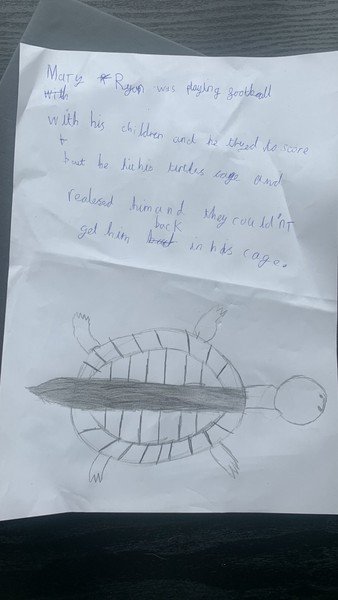 Mary Ryan was playing football
with
with his children and he tryed to score
but he hit his turtles cage and
realesed him and they could'NT
back
get him in his cage.